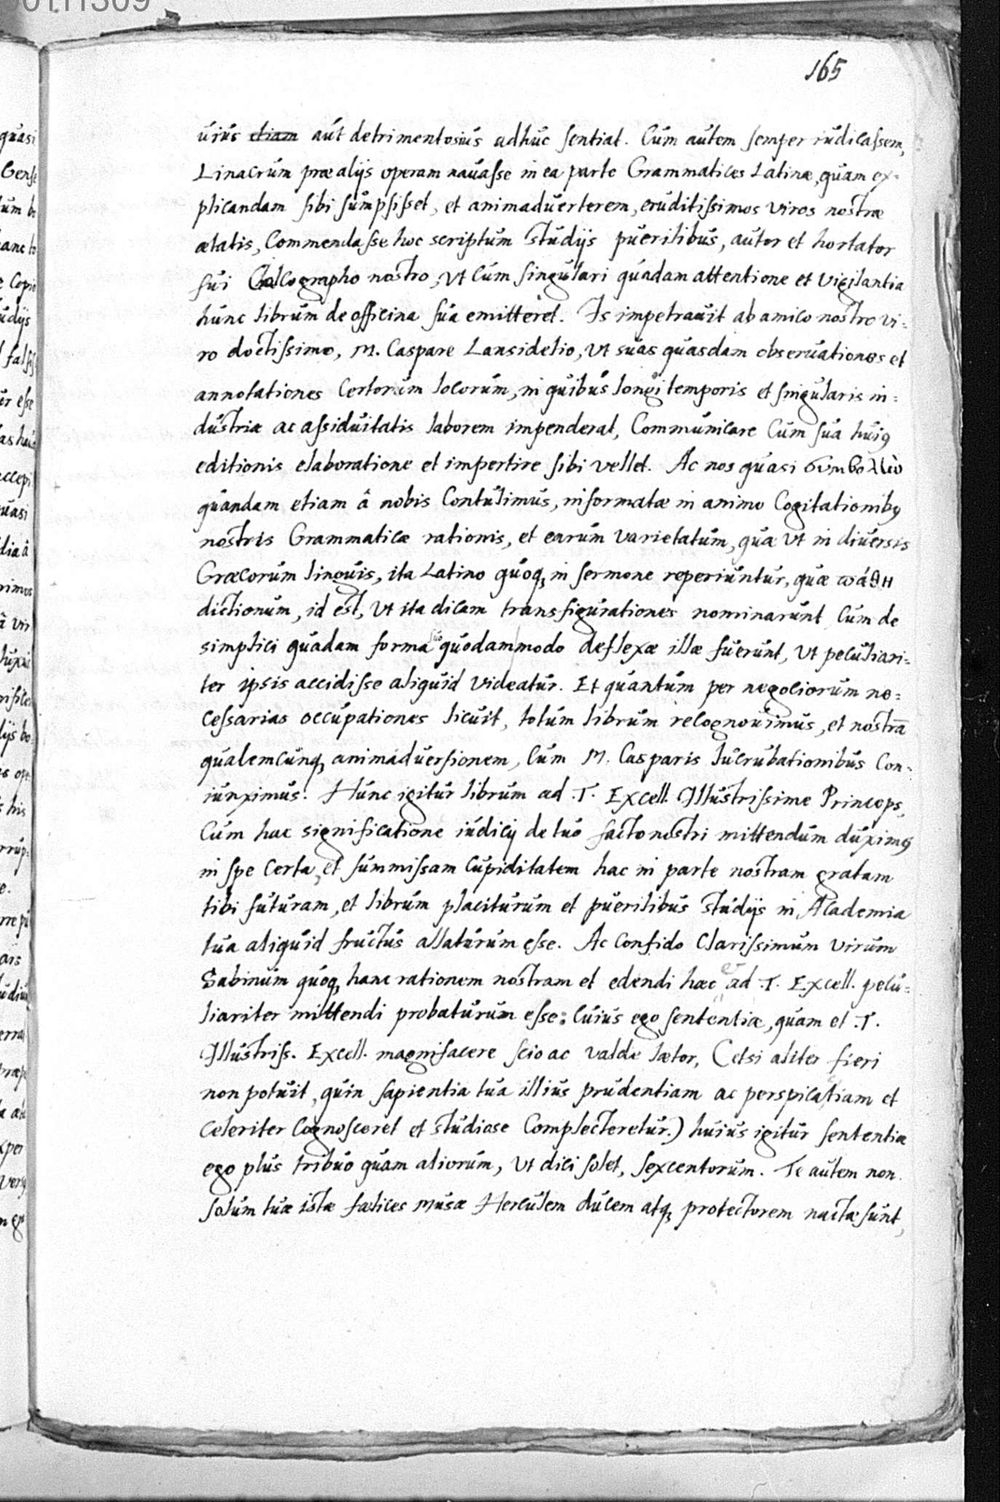 165
uius etiam aut detrimentosius adhuc sentiat. Cum autem semper iudicassem,
Linacrum præ alijs operam nauasse in ea parte Grammatices Latinæ, quam ex-
plicandam sibi sumpsisset, et animaduerterem, eruditissimos viros nostræ
ætatis, Commendasse hoc scriptum studijs puerilibus, autor et hortator
fui Calcographo nostro, vt cum singulari quadam attentione et vigilantia
hunc librum de officina sua emitteret. Is impetrauit ab amico nostro vi-
ro doctissimo, M. Caspare Lansidelio, vt suas quasdam obseruationes et
annotationes certorum locorum, in quibus longi temporis et singularis in-
dustriæ ac assiduitatis laborem impenderat, Communicare cum sua huiq
editionis elaboratione et impertire sibi vellet. Ac nos quasi
quandam etiam â nobis Contulimus, informatæ in animo Cogitationibq
nostris Grammaticæ rationis, et earum varietatum, quæ vt in diuersis
Græcorum linguis, ita Latino quoq, in sermone reperiuntur, quæ πάθη
dictionum, id est, vt ita dicam transfigurationes nominarunt cum de
simplici quadam forma quodammodo deflexæ illæ fuerunt, vt peculiari-
ter ipsis accidisse aliquid videatur. Et quantum per negociorum ne-
cessarias occupationes licuit, totum librum recognouimus, et nostrā
qualemcunq, animaduersionem, cum M. Casparis lucrubationibus Con-
iunximus. Hunc igitur librum ad .T. Excell. Illustrissime Princeps,
Cum hac significatione iudicij de tuo facto nostri mittendum duximq
in spe certa, et summissam cupiditatem hac in parte nostram gratam
tibi futuram, et librum placiturum et puerilibus studijs in Academia
tua aliquid fructus allaturum esse. Ac confido Clarissimum virum
Sabinum quoq, hanc rationem nostram et edendi hæc et ad .T. Excell. pecu-
liariter mittendi probaturum esse: Cuius ego sententiæ, quam et .T.
Illustriss. Excell. magnifacere scio ac valde lætor, (etsi aliter fieri
non potuit, quin sapientia tua illius prudentiam ac perspicatiam et
celeriter cognosceret et studiose complecteretur.) huius igitur sententiæ
ego plus tribuo quam aliorum, vt dici solet, sexcentorum. Te autem non
solum tuæ istæ fœlices musæ Herculem ducem atq, protectorem nactæ sunt,